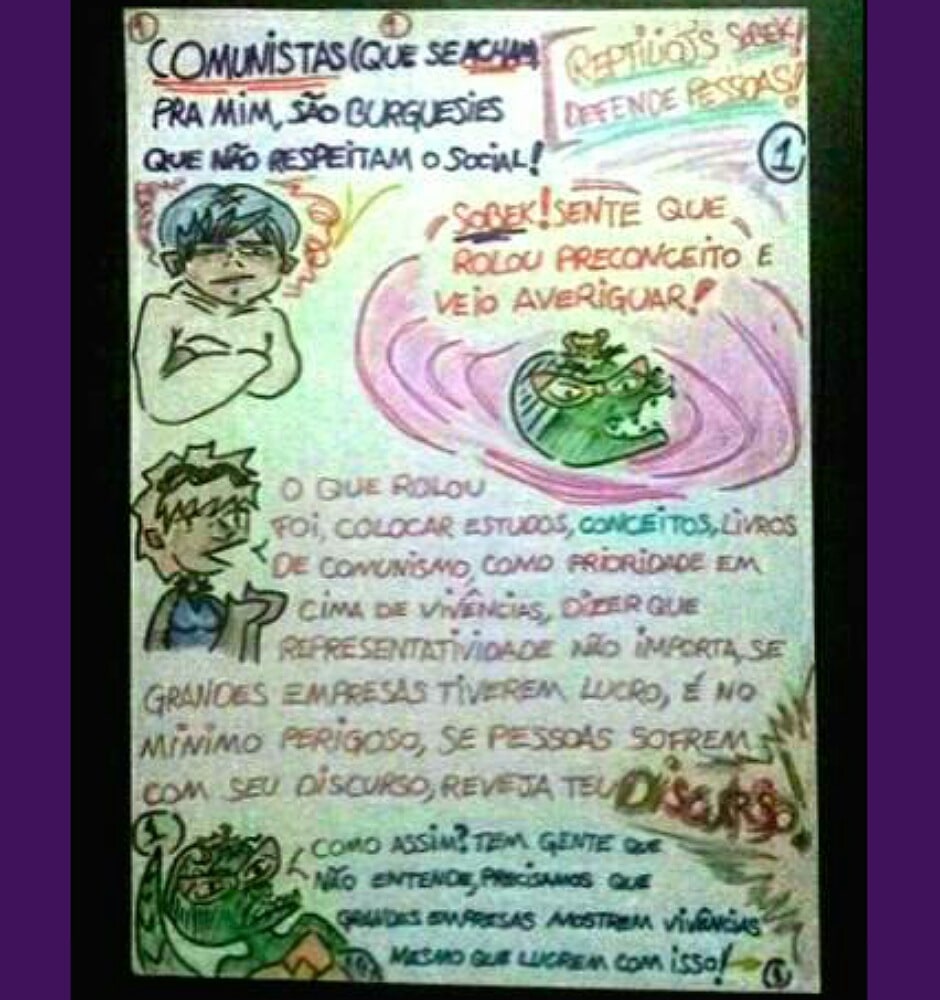 1
1
COMUNISTAS (QUE SE ACHAM)
PRA MIM, SÃO BURGUESIES
QUE NÃO RESPEITAM O SOCIAL!
SOBEK!
DEFENDE PESSOAS!
1
SOBEK! SENTE QUE
ROLOU PRECONCEITO E
VEIO AVERIGUAR!
O QUE ROLOU
FOI, COLOCAR ESTUDOS, CONCEITOS, LIVROS
DE COMUNISMO, COMO PRIORIDADE EM
CIMA DE VIVÊNCIAS, DIZER QUE
REPRESENTATIVIDADE NÃO IMPORTA, SE
GRANDES EMPRESAS TIVEREM LUCRO, É NO
MÍNIMO PERIGOSO, SE PESSOAS SOFREM
COM SEU DISCURSO, REVEJA TEU DISCURSO.
1
COMO ASSIM? TEM GENTE QUE
NÃO ENTENDE, PRECISAMOS QUE
GRANDES EMPRESAS MOSTREM VIVÊNCIAS
MESMO QUE LUCREM COM ISSO!